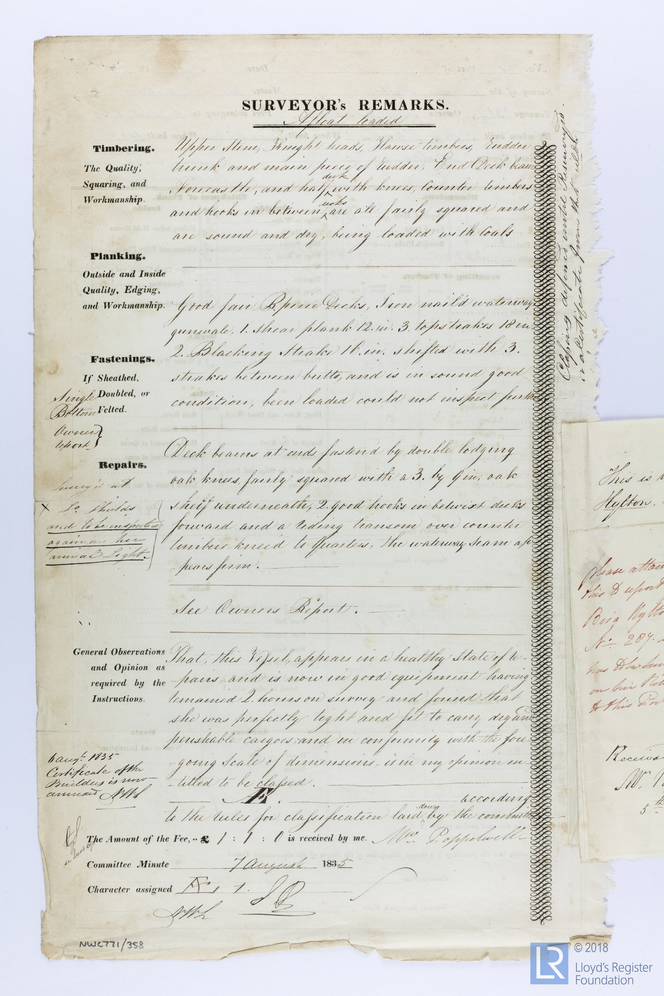 SURVEYOR's REMARKS.
Afloat loaded
Timbering.
The Quality,
Squaring, and
Workmanship.
Upper Stem, Knight heads, Hawse timbers, Rudder
trunk and main piece of rudder, End Deck beams
Forecastle, and half deck with knees, Counter timbers
and hooks in between decks are all fairly squared and
are sound and dry, being loaded with Coals
Planking.
Outside and Inside
Quality, Edging,
and Workmanship.
Good fair Decks, Iron nail'd waterway
gunwale, 1. shear plank 12 in. 3. topstrakes 18 in.
2. Blacking Strake 16 in. shifted with 3.
strakes between butts, and is in sound good
condition, been loaded could not inspect further
Fastenings.
If Sheathed,
Doubled, or
Felted.
Single
Bottom
Owners
report
Deck beams at ends fastend by double lodging
oak knees fairly squared with a 3. by 9 in. oak
shelf underneath, 2 good hooks in betwixt decks
forward and a transom over counter
timbers kneed to Quarters, the waterway seam
Repairs.
So. Shields
and to be inspected
again on her
arrival light.
See Owners Report.
General Observations
and Opinion as
required by the
Instructions.
That, this Vessel, appears in a healthy State of re-
pairs, and is now in good equipment having
remained 2. hours on survey and found that
she was perfectly tight and fit to carry dry and
perishable cargoes and in conformity with the fore
going Scale of dimensions, is in my opinion en-
titled to be classed.
Æ according
to the rules for classification laid down by the committee
6 Augt. 1835
Certificate of the
Builders is now
annexed
The Amount of the Fee, £ 1 : 1 : 0 is received by me. Wm. Poppelwell
Committee Minute 7 August 1835
Character assigned Æ 1
Classing deferred until Resurvey is
a Certificate from
NWC771/358
This is
Hylton.
please
this Report
Brig Hylton
No. 287.
on
to this Port
Received
Mr.
5th
LR
© 2018
Lloyd's Register
Foundation